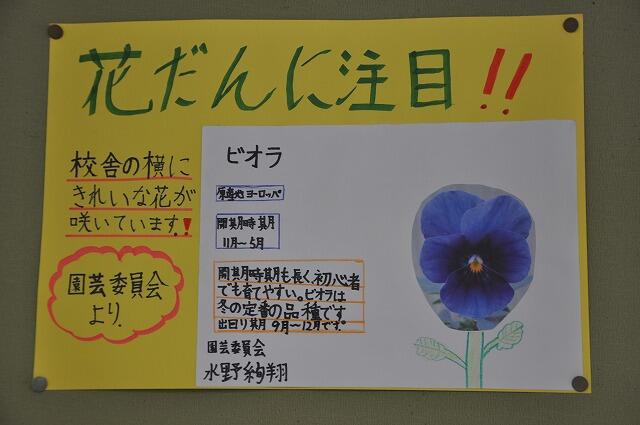 花だんに注目!!
校舎の横に
きれいな花が
咲いています!
園芸委員会
より
ビオラ
原産地ヨーロッパ
開期時期
11月～5月
開期時期も長く初心者
でも育てやすい。ビオラは
冬の定番の品種です
出回り期 9月～12月です。
園芸委員会
水野絢翔